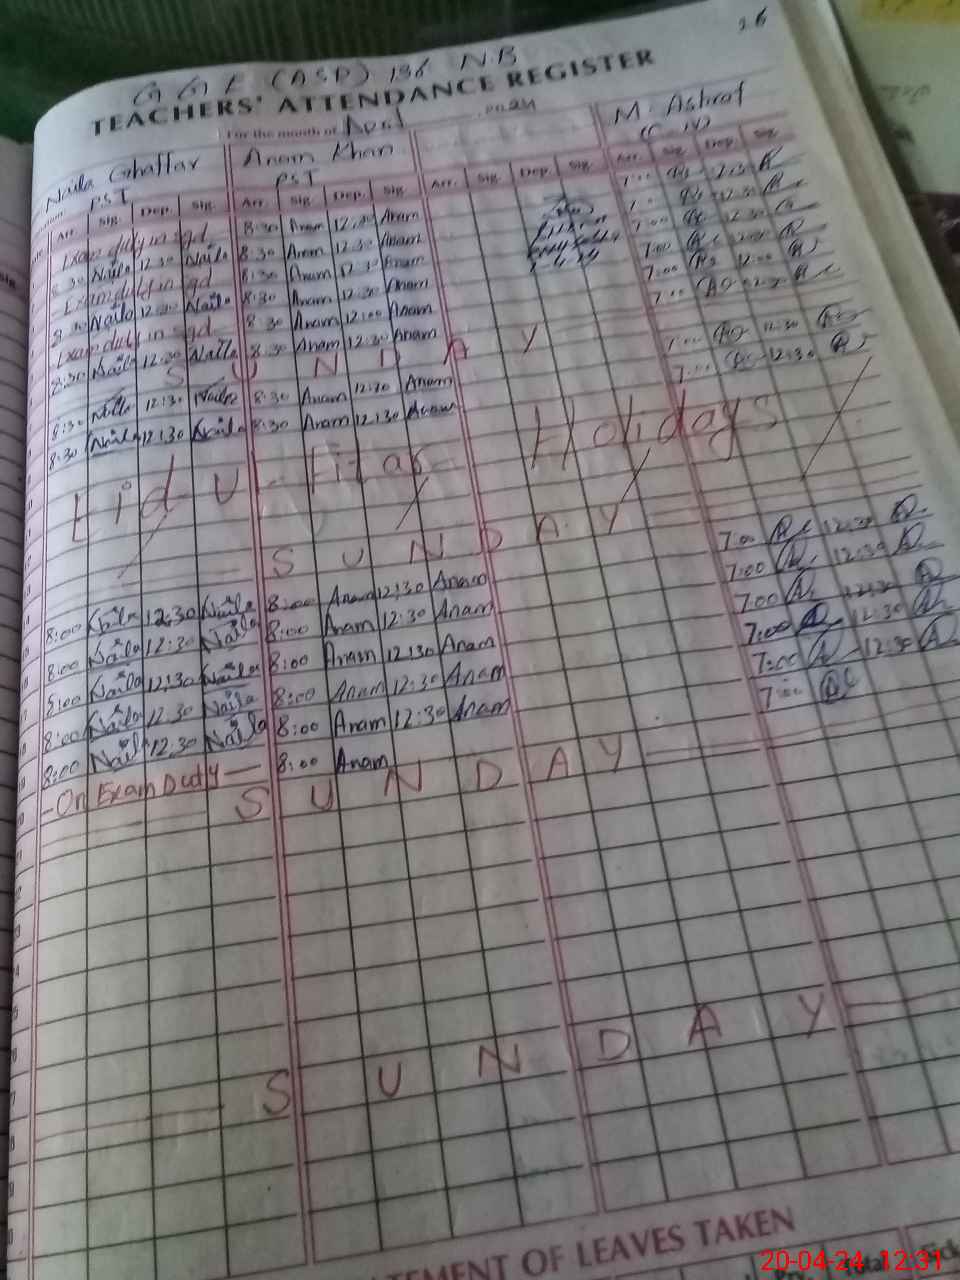 26
G G E (ASP) 136 N.B
TEACHERS' ATTENDANCE REGISTER
For the month of April 2024
Naila Ghaffar Anam Khan M. Ashraf
PST PST (C IV)
Arr. Sig. Dep. Sig. Arr. Sig. Dep. Sig. Arr. Sig. Dep. Sig. Arr. Sig. Dep. Sig.
Exam duty in sgd 8:30 Anam 12:30 Anam 7:00 12:30
8:30 Naila 12:30 Naila 8:30 Anam 12:30 Anam 12:30
Exam duty in sgd 8:30 Anam 12:30 Anam 7:00 12:30
8:30 Naila 12:30 Naila 8:30 Anam 12:30 Anam 7:00
Exam duty in sgd 8:30 Anam 12:00 Anam 7:00 12:00
8:30 Naila 12:30 Naila 8:30 Anam 12:30 Anam 7:00
SUNDAY
8:30 Naila 12:30 Naila 8:30 Anam 12:30 Anam 7:00 12:30
8:30 Naila 12:30 Naila 8:30 Anam 12:30 Anam 7:00 12:30
Eid-ul-Fitar Holidays
SUNDAY
8:00 Naila 12:30 Naila 8:00 Anam 12:30 Anam 7:00 12:30
8:00 Naila 12:30 Naila 8:00 Anam 12:30 Anam 7:00 12:30
8:00 Naila 12:30 Naila 8:00 Anam 12:30 Anam 7:00 12:30
8:00 Naila 12:30 Naila 8:00 Anam 12:30 Anam 7:00 12:30
8:00 Naila 12:30 Naila 8:00 Anam 12:30 Anam 7:00 12:30
- On Exam Duty - 8:00 Anam 7:00
SUNDAY
SUNDAY
TEMENT OF LEAVES TAKEN
20-04-24 12:31